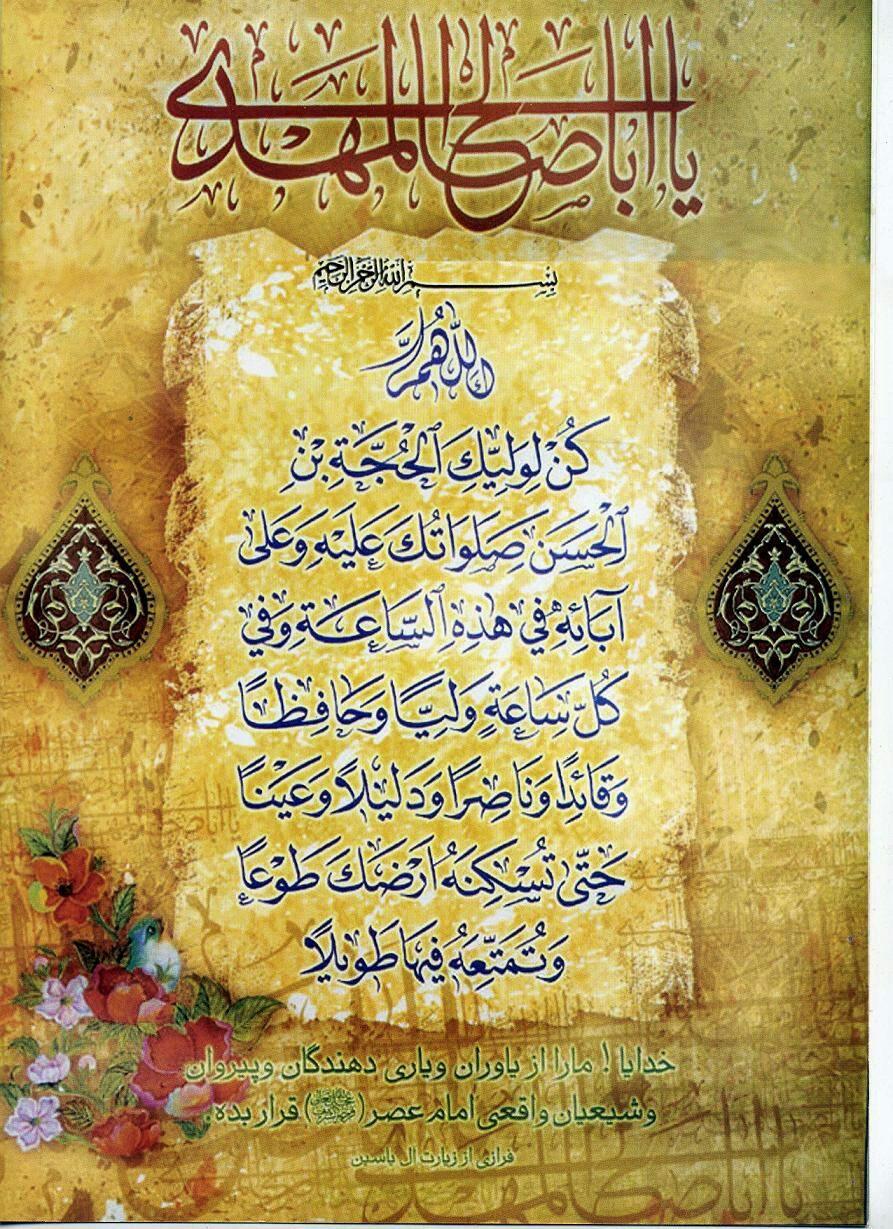 يا أباصالح المهدى
بِسْمِ اللهِ الرَّحْمنِ الرَّحِيمِ
اَللّهُمَّ
كُنْ لِوَلِيِّكَ ٱلْحُجَّةِ بْنِ
ٱلْحَسَنِ صَلَوَاتُكَ عَلَيْهِ وَعَلَى
آبَائِهِ فِي هٰذِهِ ٱلسَّاعَةِ وَفِي
كُلِّ سَاعَةٍ وَلِيًّا وَحَافِظًا
وَقَائِدًا وَنَاصِرًا وَدَلِيْلًا وَعَيْنًا
حَتَّى تُسْكِنَهُ اَرْضَكَ طَوْعًا
وَتُمَتِّعَهُ فِيْهَا طَوِيْلًا
خدایا ! مارا از یاوران ویاری دهندگان وپیروان
وشیعیان واقعی امام عصر () قرار بده.
فرازی از زیارت آل یاسین